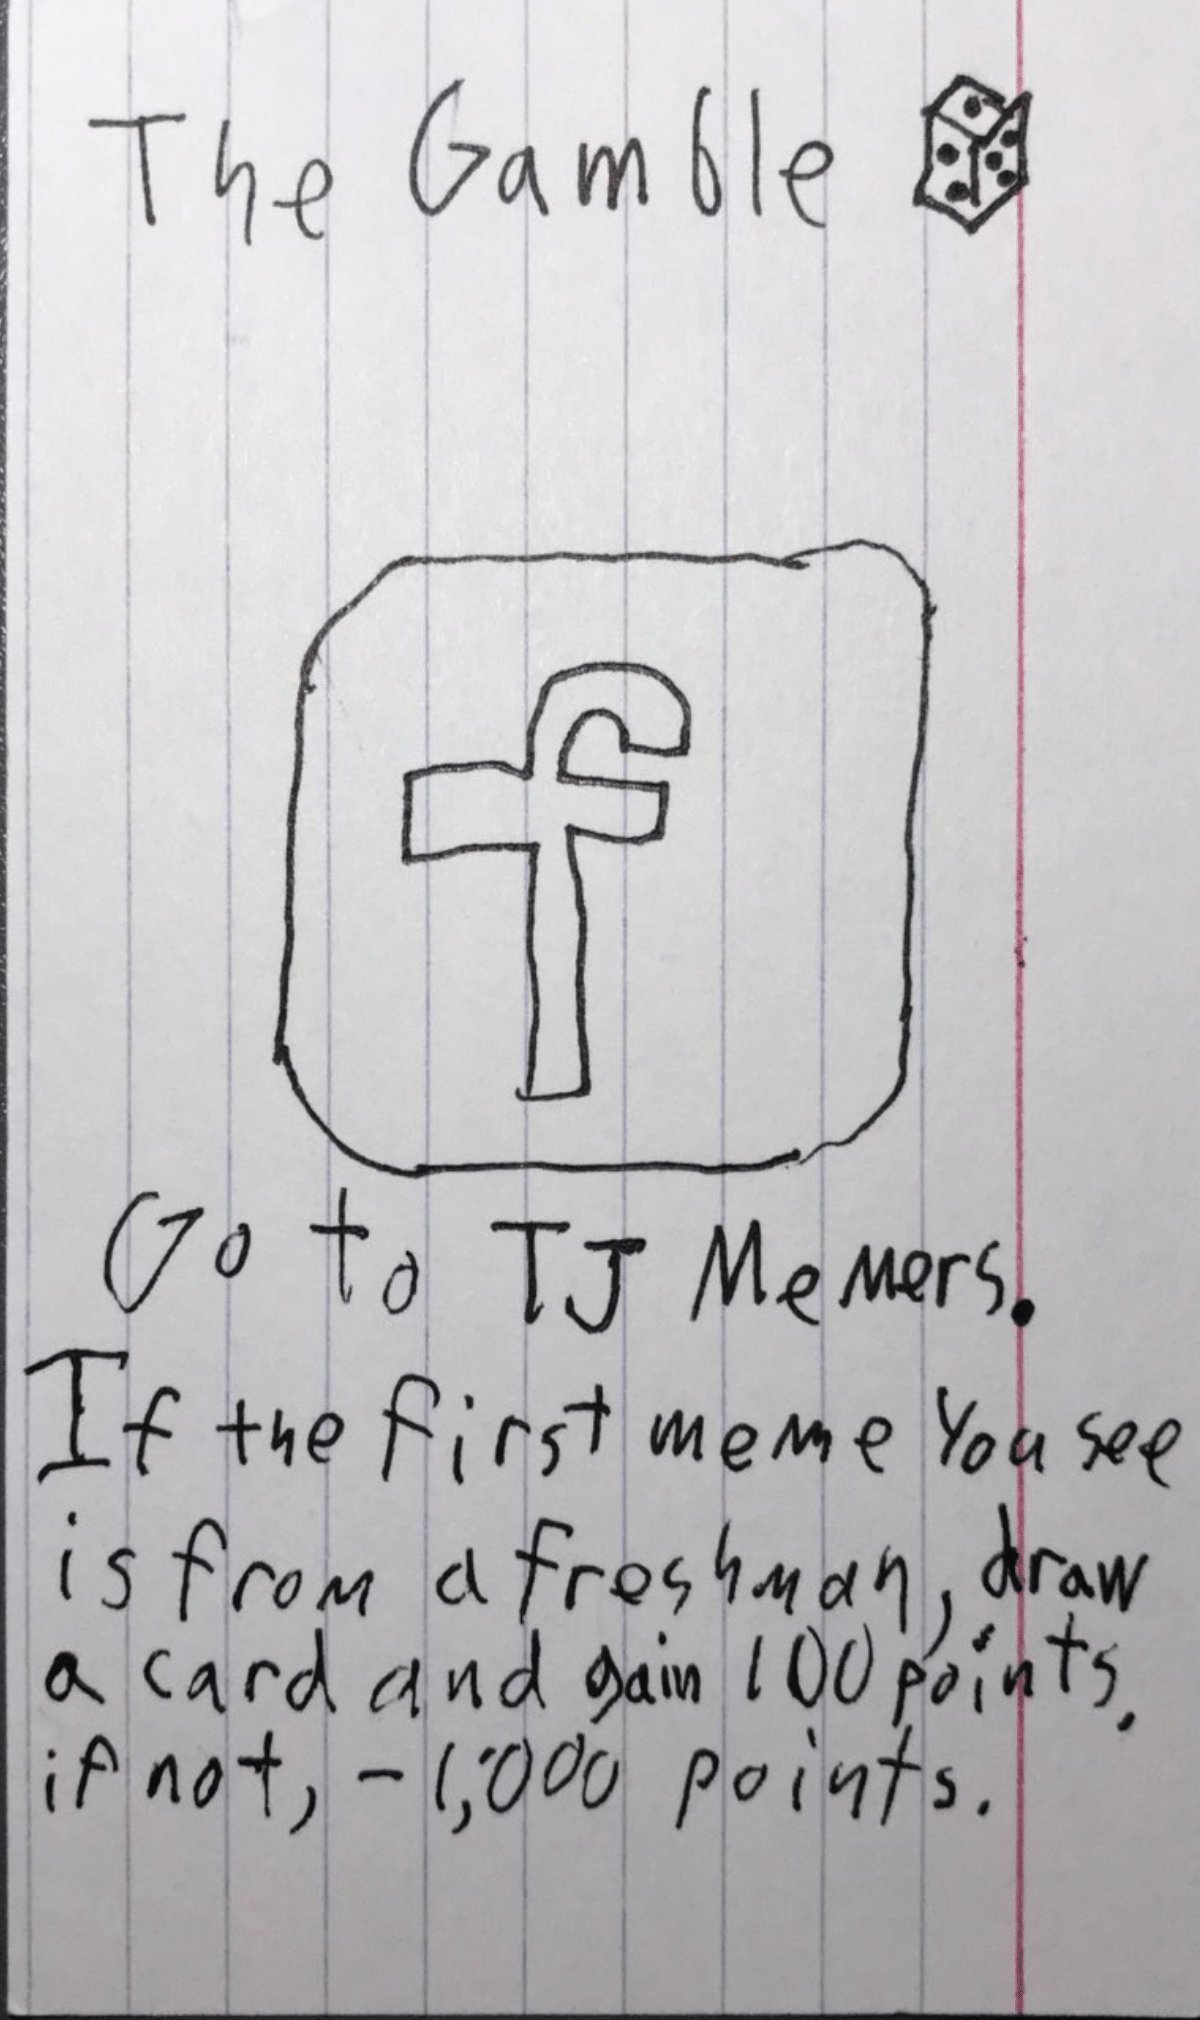 The Gamble
f
Go to TJ Memers.
If the first meme You see
is from a freshman, draw
a card and gain 100 points.
if not, -1,000 points.